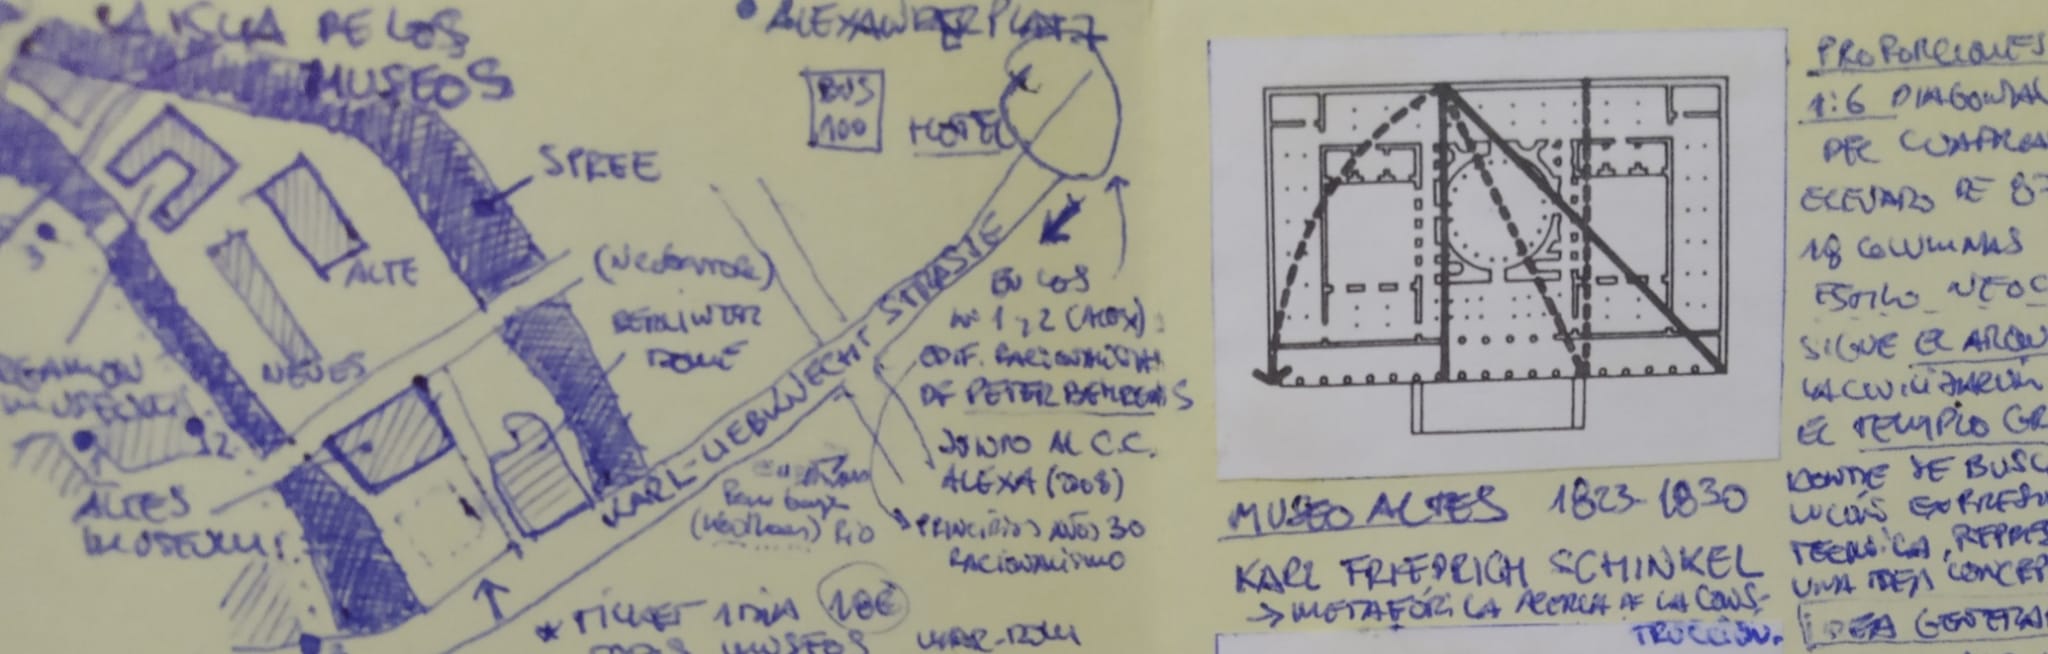 LA ISLA DE LOS
MUSEOS
• ALEXANDERPLATZ
BUS
100
HOTEL
SPREE
ALTE
NEUES
3
MUSEUM
12
ALTES
MUSEUM
BERLINER
DOME
KARL-LIEBKNECHT STRASSE
EN LOS
Nº 1 y 2 (ALEX)
EDIF. RACIONALISTAS
DE PETER BEHRENS
JUNTO AL C.C.
ALEXA (2008)
PRINCIPIOS AÑOS 30
RACIONALISMO
* TICKET 1 DIA 18€
MUSEOS
MUSEO ALTES 1823-1830
KARL FRIEDRICH SCHINKEL
→ METAFÓRICA ACERCA DE LA CONS-
TRUCCIÓN.
PROPORCIONES
1:6 DIAGONAL
DEL
ELEVADO DE 87
18 COLUMNAS
ESTILO NEOC
SIGUE EL
EL TEMPLO GR
DONDE SE BUSC
TECNICA, REPRES
UNA IDEA CONCEP
IDEA GENERA